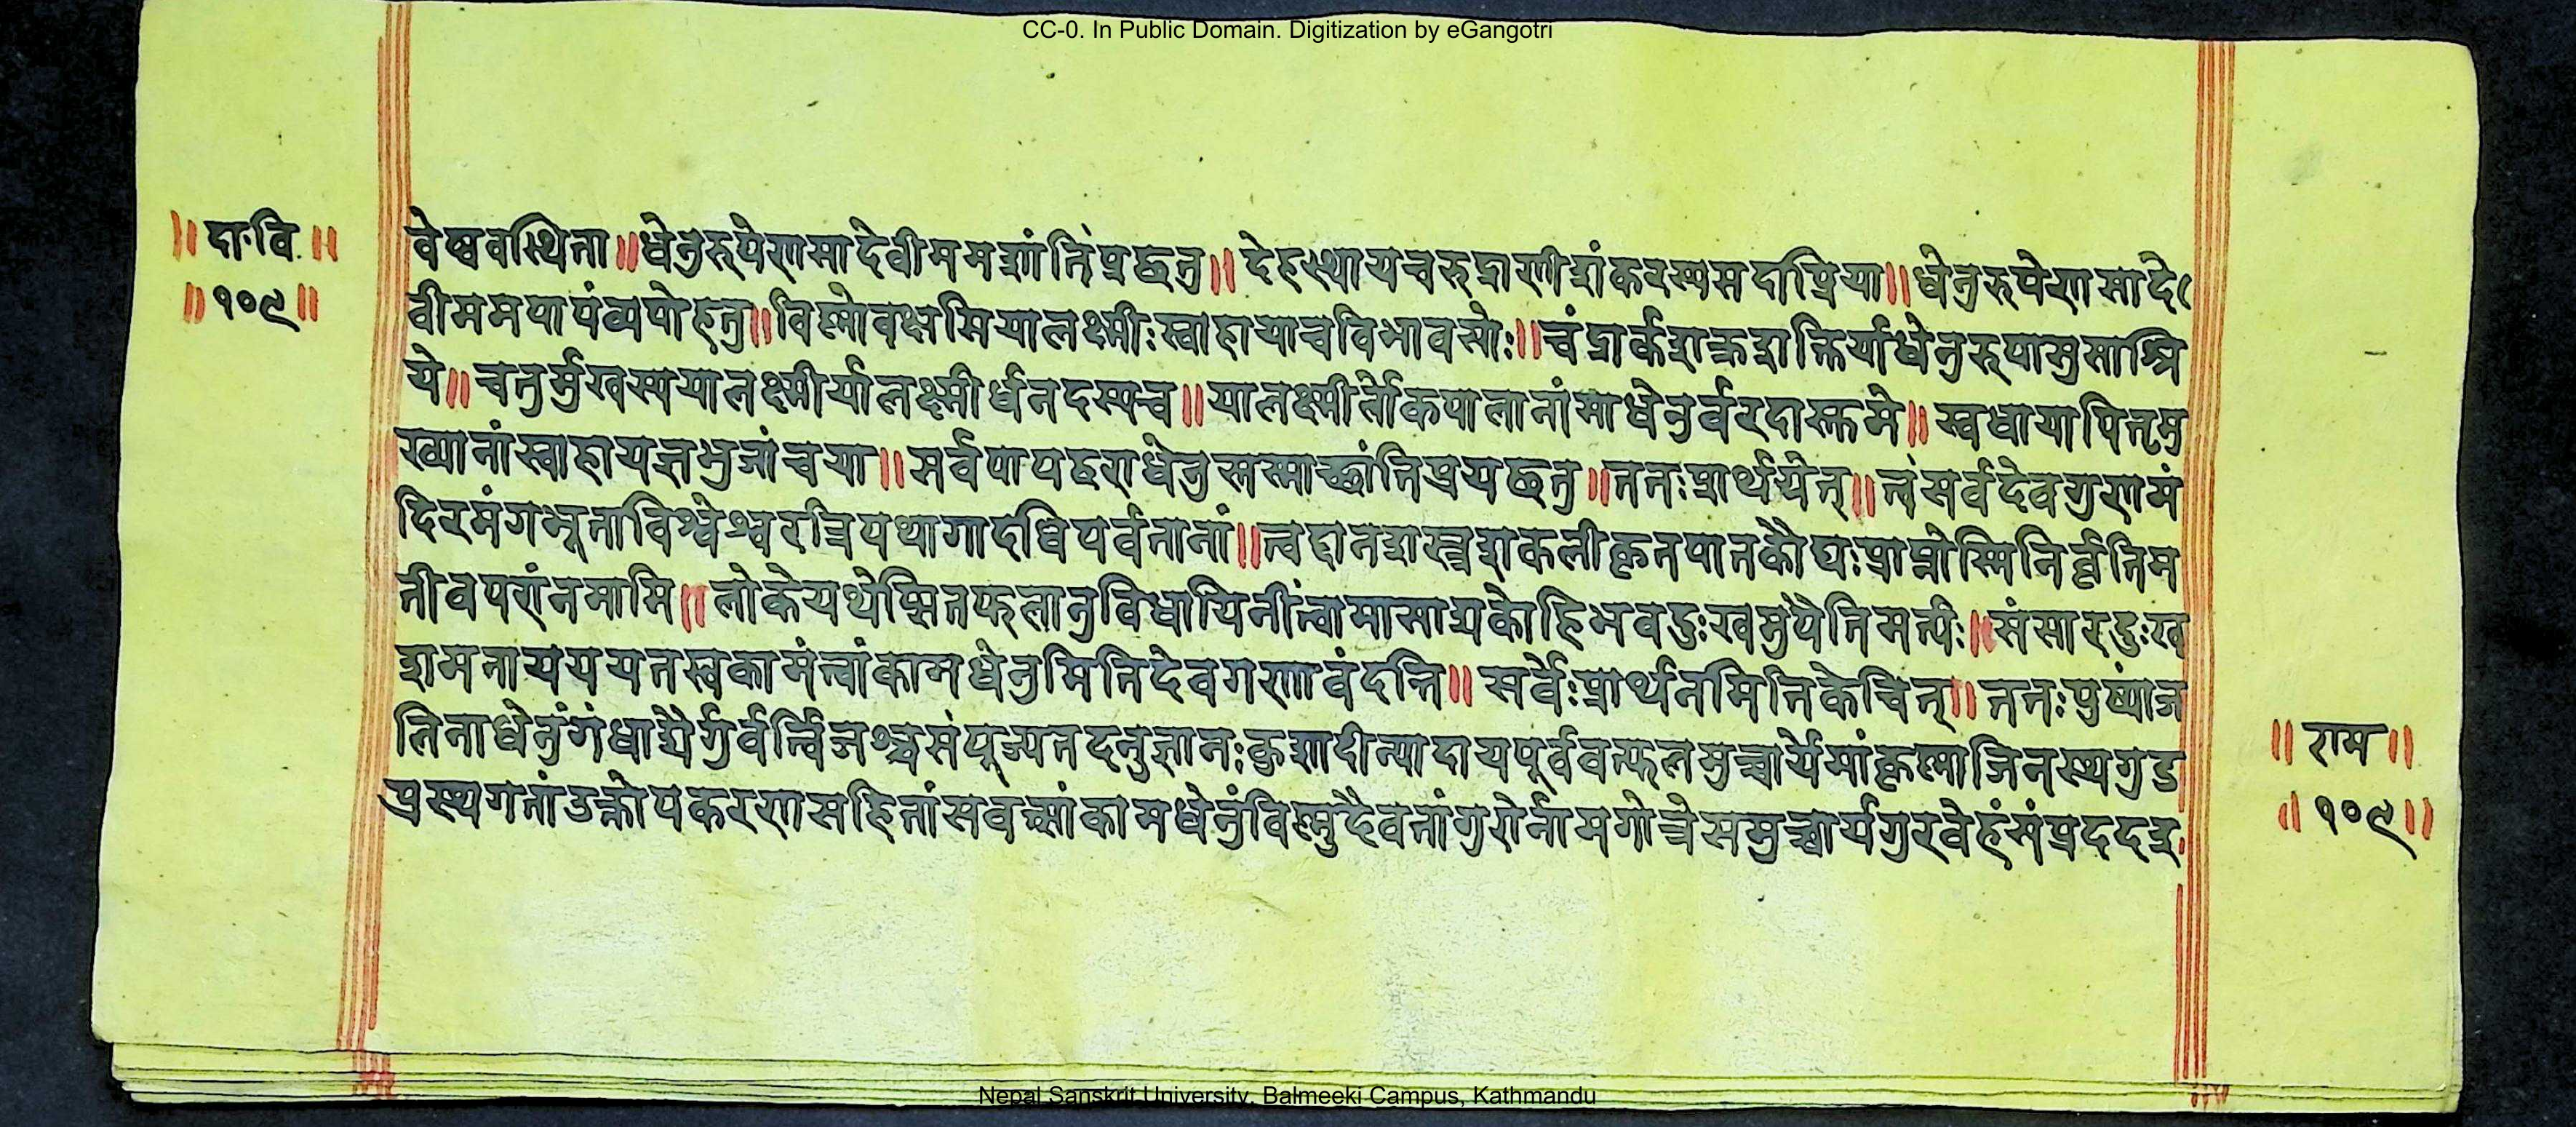 CC-0. In Public Domain. Digitization by eGangotri
॥दा॰वि॰॥
॥१०९॥
वेष्ववस्थिता॥धेनुरुपेणसादेवीममशांतिंप्रछतु॥देहस्थायचरुद्राणीशंकरस्यसदाप्रिया॥धेनुरुपेणसादे
वीममपापंव्यपोहतु॥विष्णोवक्षसियालक्ष्मीःस्वाहायाचविभावसोः॥चंद्रार्कशक्रशक्तिर्याधेनुरुपास्तुसाश्रि
ये॥चतुर्मुखस्ययालक्ष्मीर्यालक्ष्मीर्धनदस्यच॥यालक्ष्मीर्लोकपालानांसाधेनुर्वरदास्तुमे॥स्वधायापितृमु
ख्यानांस्वाहायज्ञभुजांचया॥सर्वपापहराधेनुस्तस्माच्छांतिप्रयछतु॥ततःप्रार्थयेत्॥त्वंसर्वदेवगणमं
दिरमंगभूताविश्वेश्वरत्रिपथागादधिपर्वतानां॥त्वद्दानशस्त्रशकलीकृतपातकौघःप्राप्तोस्मिनिर्वृतिम
तीवपरांनमामि॥लोकेयथेप्सितफलानुविधायिनींत्वामासाद्यकोहिभवदुःखमुपैतिमर्त्यः॥संसारदुःख
शमनाययतस्वकामंत्वांकामधेनुमितिदेवगणावंदन्ति॥सर्वैःप्रार्थनमितिकेचित्॥ततःपुष्पांज
लिनाधेनुंगंधाद्यैर्गुर्वर्त्विजश्चसंपूज्यतदनुज्ञातःकुशादीन्यादायपूर्ववत्फलमुच्चार्येमांकृष्णाजिनस्थगुड
प्रस्थगतांउक्तोपकरणसहितांसवत्सांकामधेनुंविष्णुदैवतांगुरोर्नामगोत्रेसमुच्चार्यगुरवेहंसंप्रददइ
॥राम॥
॥१०९॥
Nepal Sanskrit University, Balmeeki Campus, Kathmandu